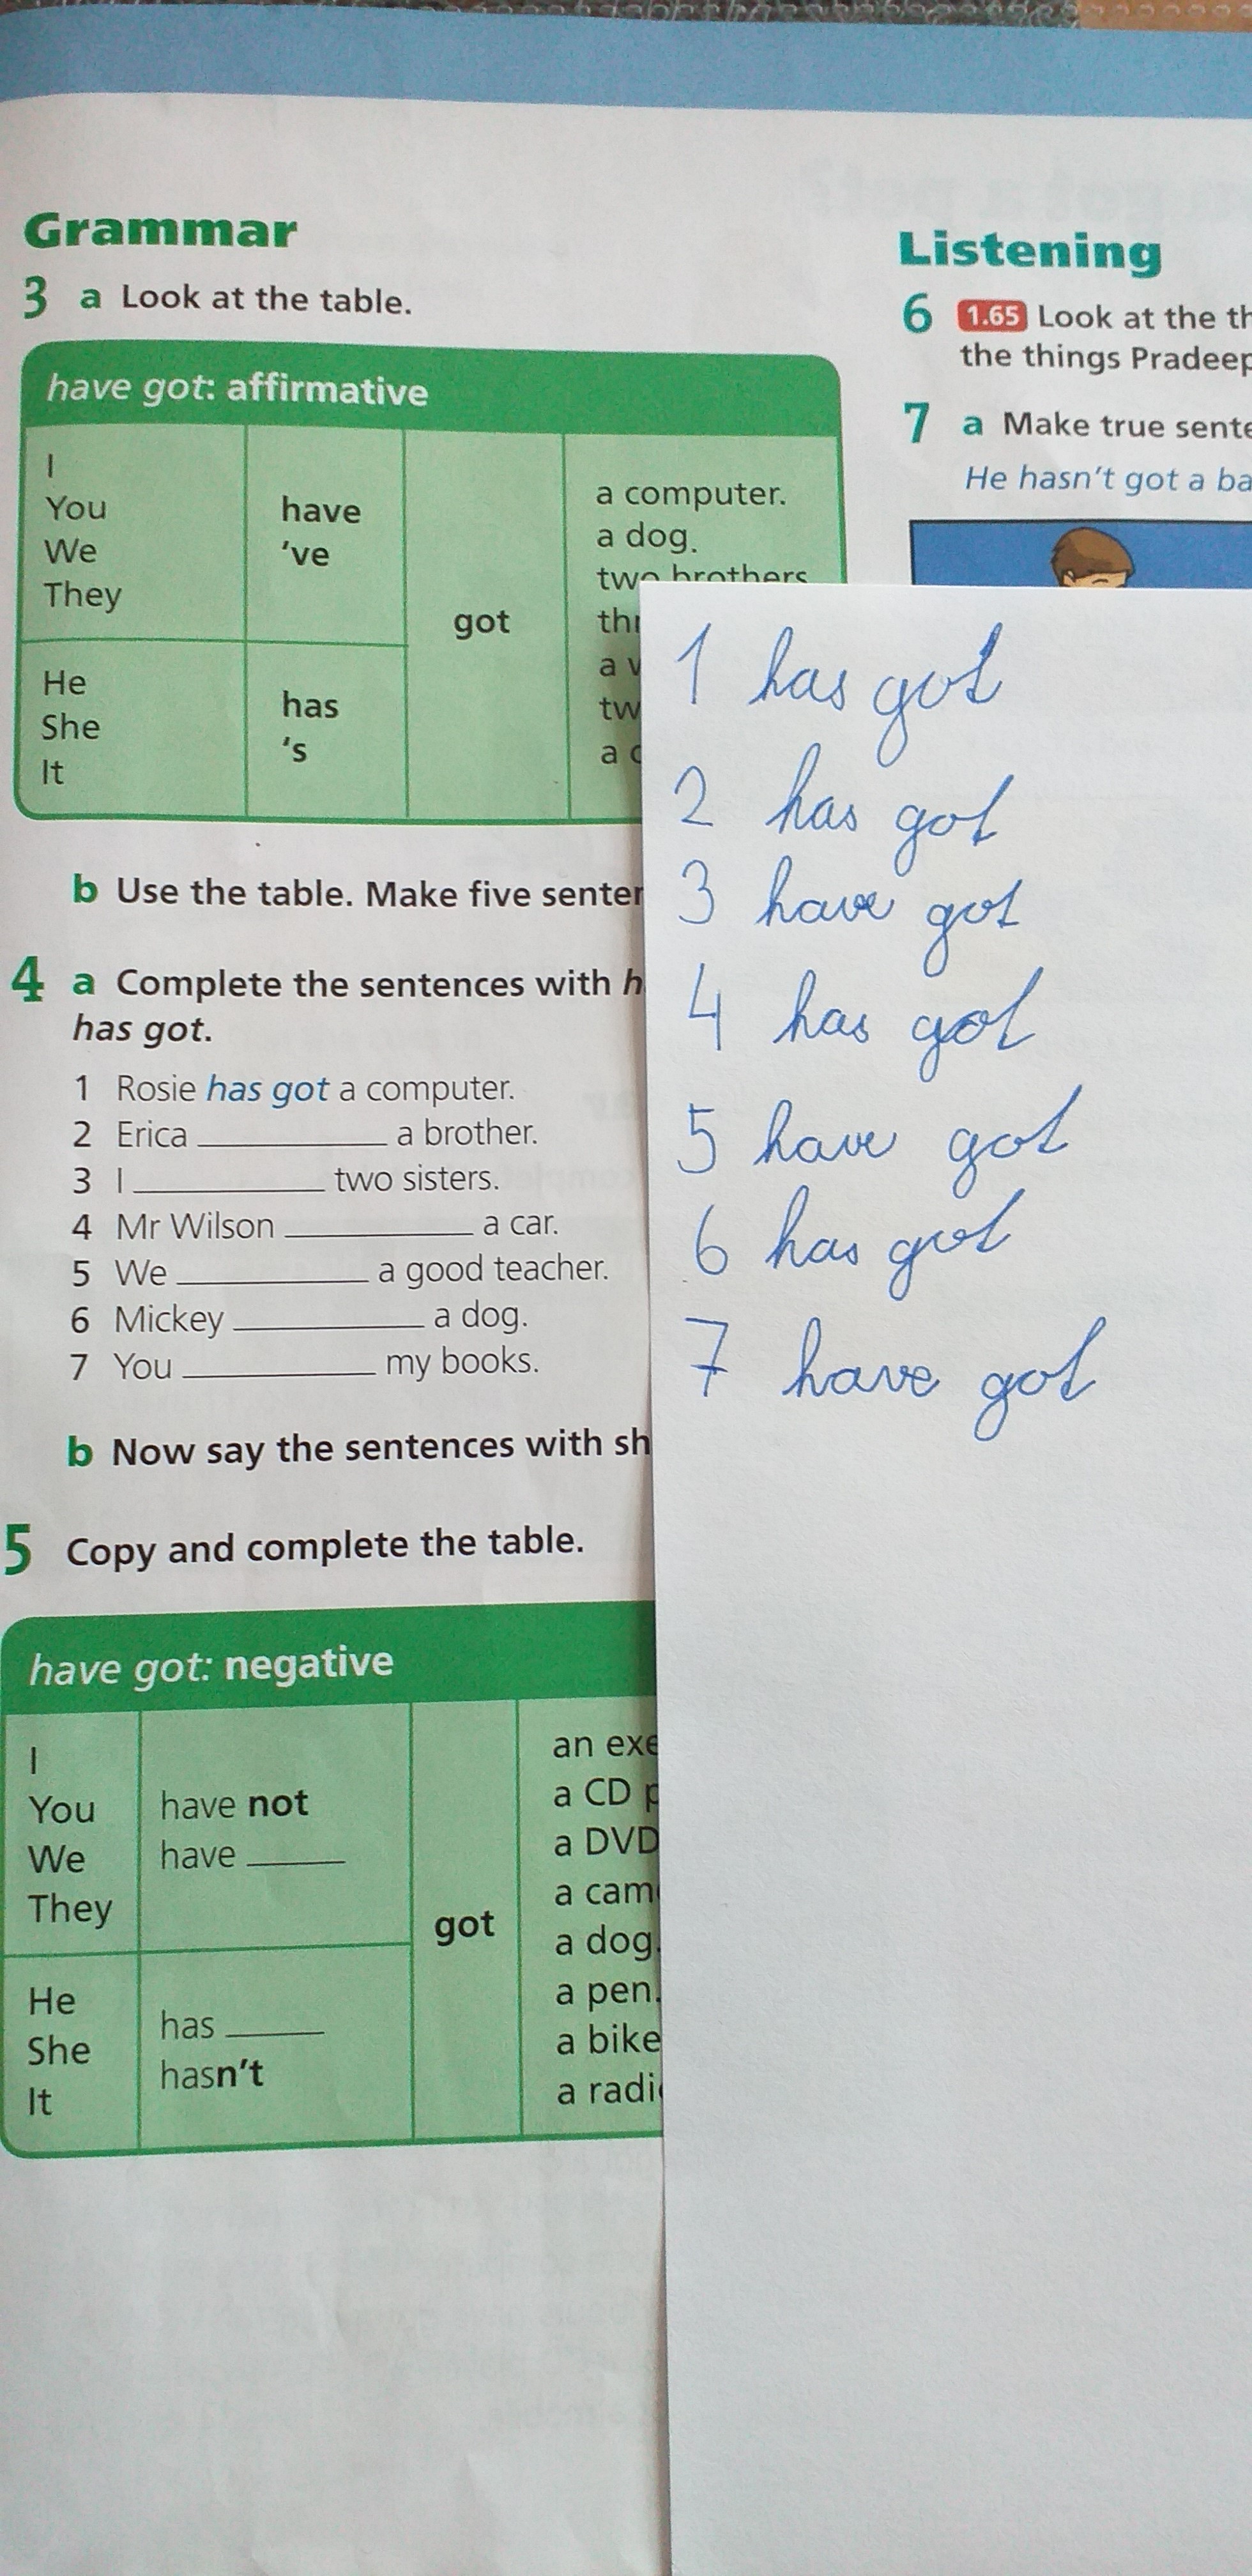 Grammar
3 a Look at the table.
have got: affirmative
I
You
We
They
have
've
He
She
It
has
's
got
a computer.
a dog.
two brothers
a
tw
a
b Use the table. Make five
4 a Complete the sentences with
has got.
1 Rosie has got a computer.
2 Erica ____________ a brother.
3 I ____________ two sisters.
4 Mr Wilson ____________ a car.
5 We ____________ a good teacher.
6 Mickey ____________ a dog.
7 You ____________ my books.
b Now say the sentences with sh
5 Copy and complete the table.
have got: negative
I
You
We
They
have not
have ______
He
She
It
has ______
hasn't
got
an exe
a CD
a DVD
a cam
a dog.
a pen.
a bike
a radi
Listening
6 1.65 Look at the th
the things Pradeep
7 a Make true sente
He hasn't got a ba
1 has got
2 has got
3 have got
4 has got
5 have got
6 has got
7 have got